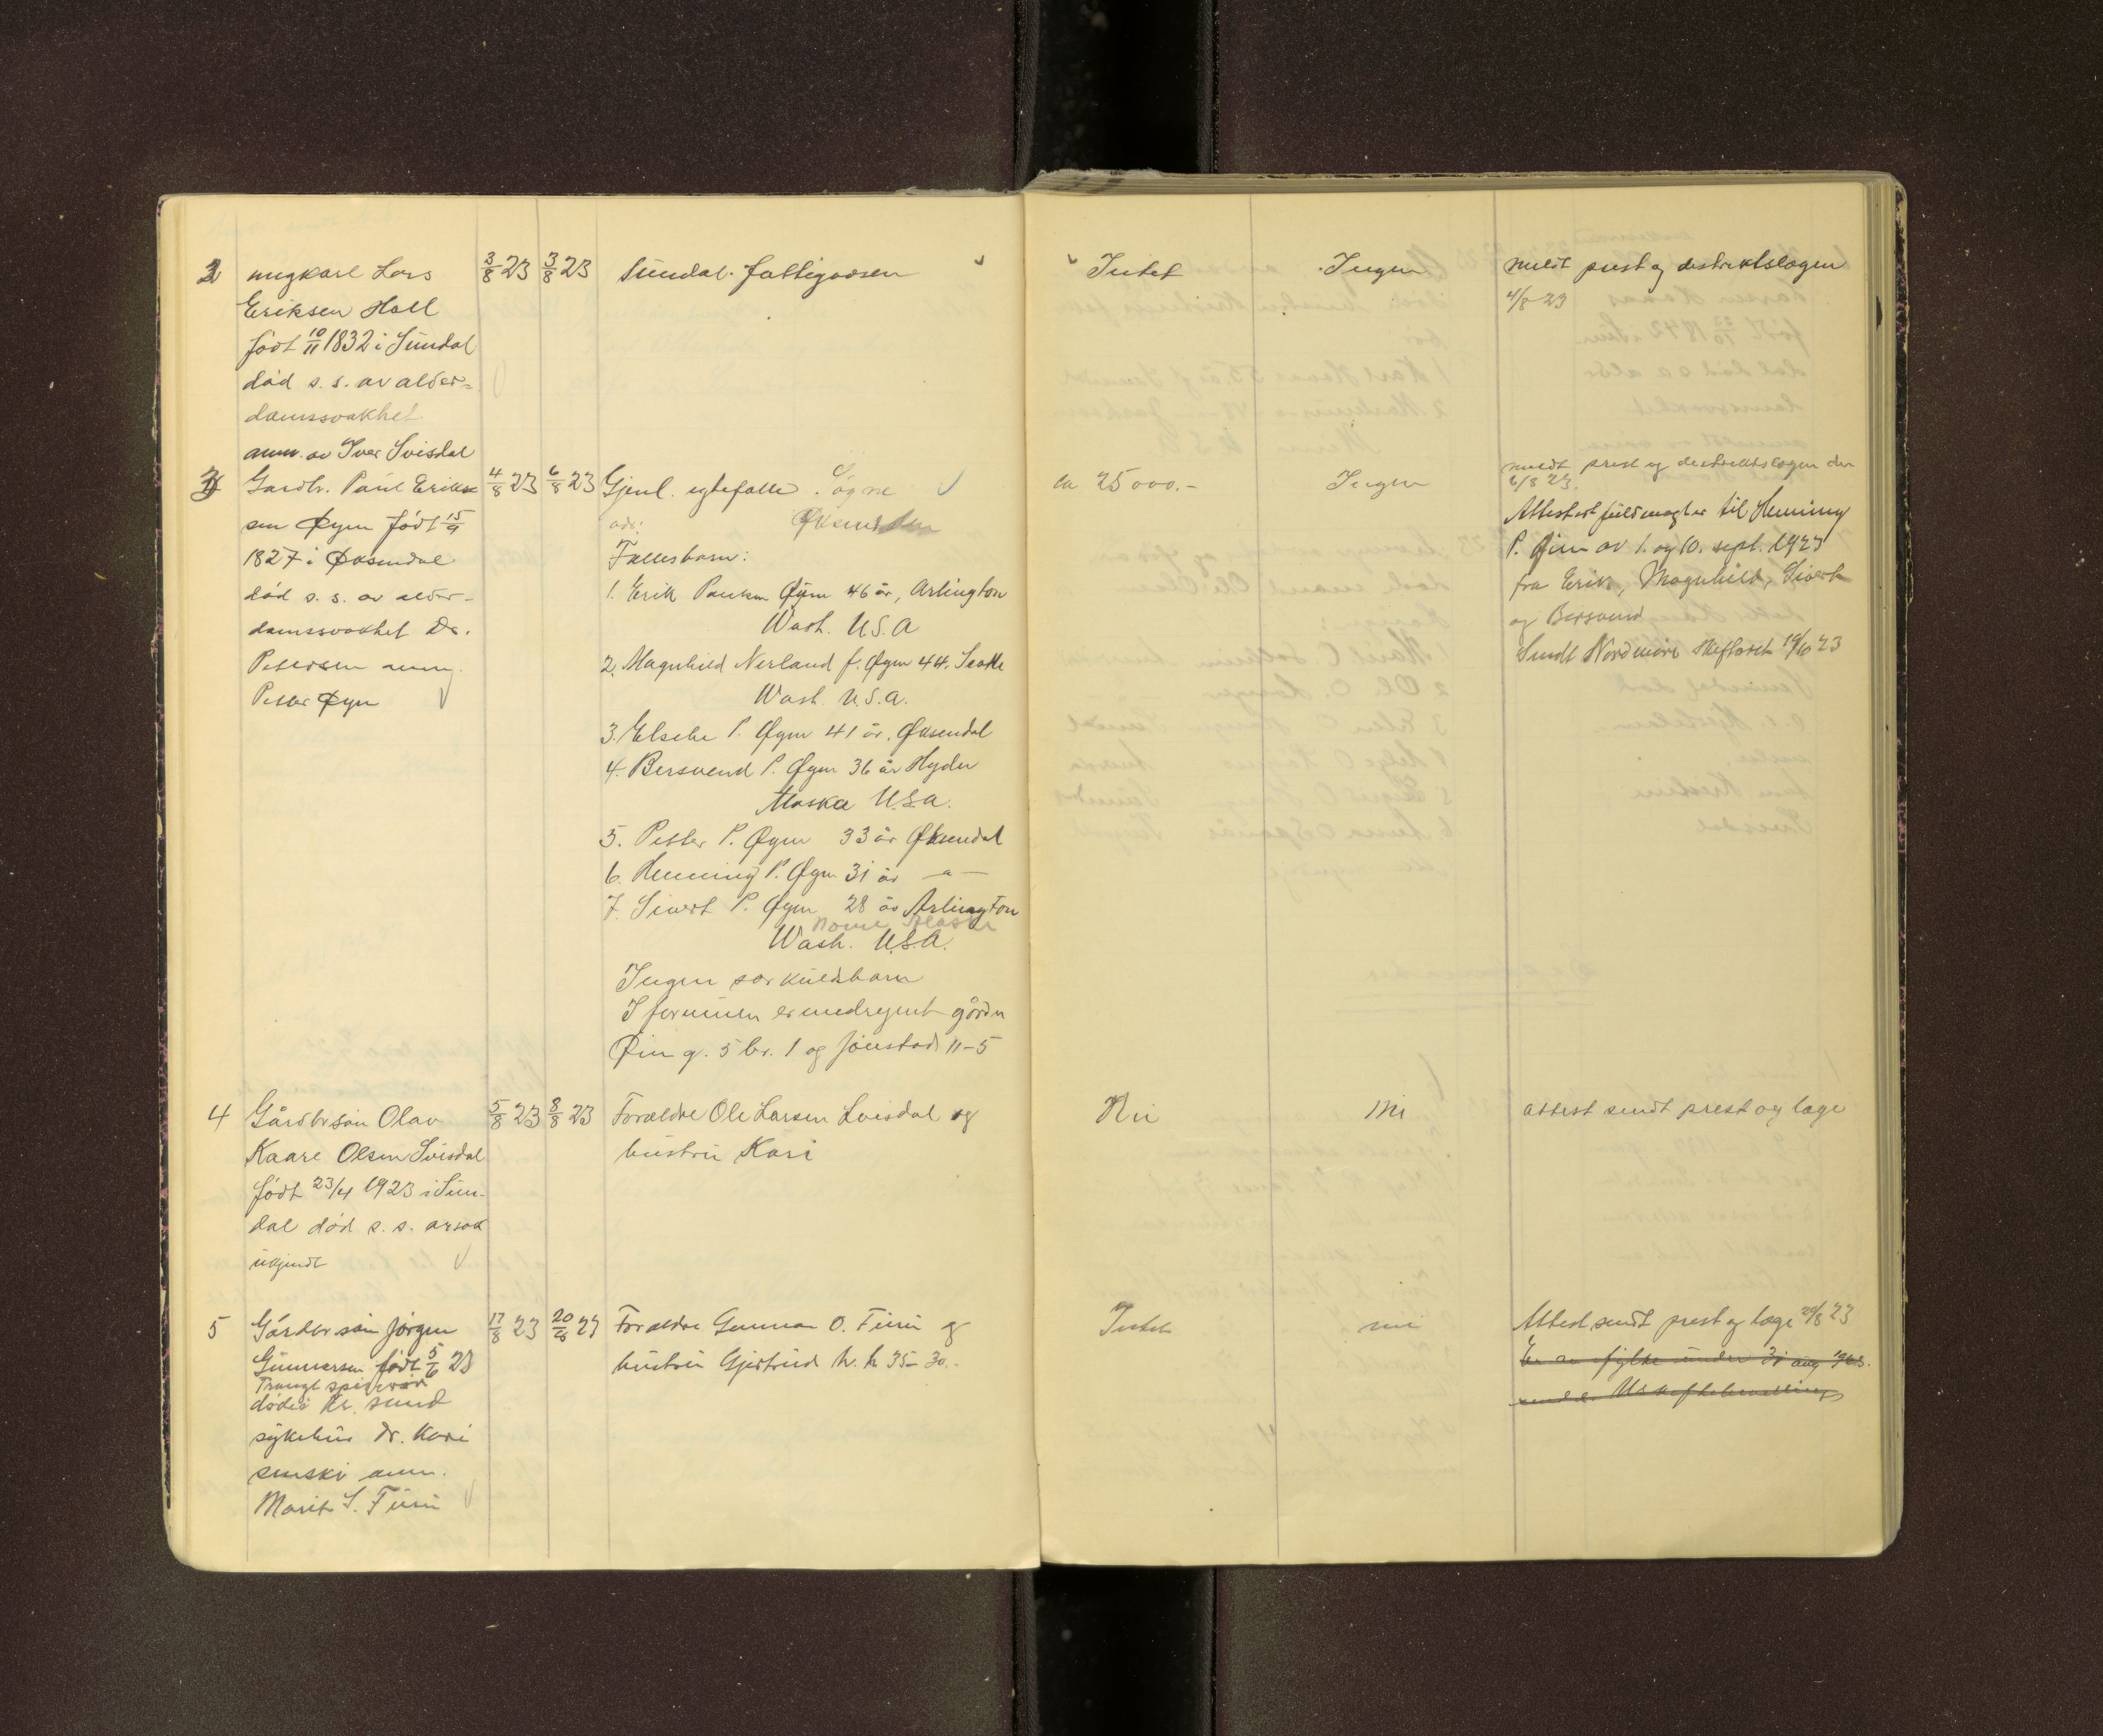 2 ungkarl Lars 3/8 23 3/8 23 Sundal fattigvæsen Intet Ingen meldt prest og distriktslægen
Eriksen Hall 4/8 23
født 10/11 1832 i Sundal
død s. s. av alder-
damssvakhet
anm. av Iver Svisdal
3 Gardbr. Paul Erik 4/8 23 6/8 23 Gjenl. egtefælle ca 25000.- Ingen meldt prest og distriktslægen den
6/8 23.
sen Øyen født 15/9 Øksendalen Attestert fuldmagter til Henning
1827 i Øksendal Fællesbarn: P. Øien av 1. og 10. sept. 1923
død s. s. av alder- 1. Erik Paulsen Øyen 46 år, Arlington fra Erik, Magnhild, Sivert
damssvakhet Dr. Wash. U.S.A og Bersvend
Petersen anm. 2. Magnhild Nerland f. Øyen 44. Seattle Sendt Nordmøre skifteret 19/10 23
Petter Øyen Wash. U.S.A.
3. P. Øyen 41 år. Øksendal
4. Bersvend P. Øyen 36 år Hyder
Alaska U.S.A.
5. Petter P. Øyen 33 år Øksendal
6. Henning P. Øyen 31 år —"—
7. Sivert P. Øyen 28 år Arlington
Nome Alaska
Wash. U.S.A.
Ingen særkuldsbarn
I formuen er medregnet gården
Øien g. 5 br. 1 og Jønstad 11-5
4 Gårdbrsøn Olav 5/8 23 8/8 23 Forældre Ole Larsen Svisdal og Nei Nei attest sendt prest og læge
Kaare Olsen Svisdal hustru Kari
født 23/4 1923 i Sun-
dal død s. s. årsak
ukjendt
5 Gårdbrsøn Jørgen 17/8 23 20/8 23 Forældre Gunnar O. Furu og Intet nei Attest sendt prest og læge 20/8 23
Gunnarsen født 5/6 23 hustru Gjertrud h. h. 35-30.-
Trangt spiserør
død i Kr. sund
sykehus Dr. Kari
senski anm.
Marit S. Furu